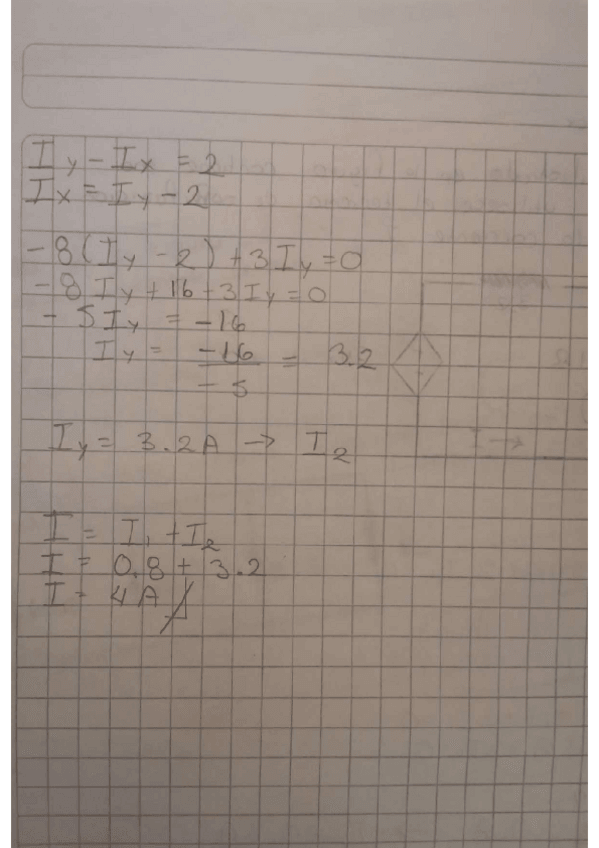 I y - I x = 2
I x = I y - 2
-8 ( I y - 2 ) + 3 I y = 0
-8 I y + 16 + 3 I y = 0
- 5 I y = -16
I y = -16 / -5 = 3.2
I y = 3.2 A → I 2
I = I 1 + I 2
I = 0.8 + 3.2
I = 4 A